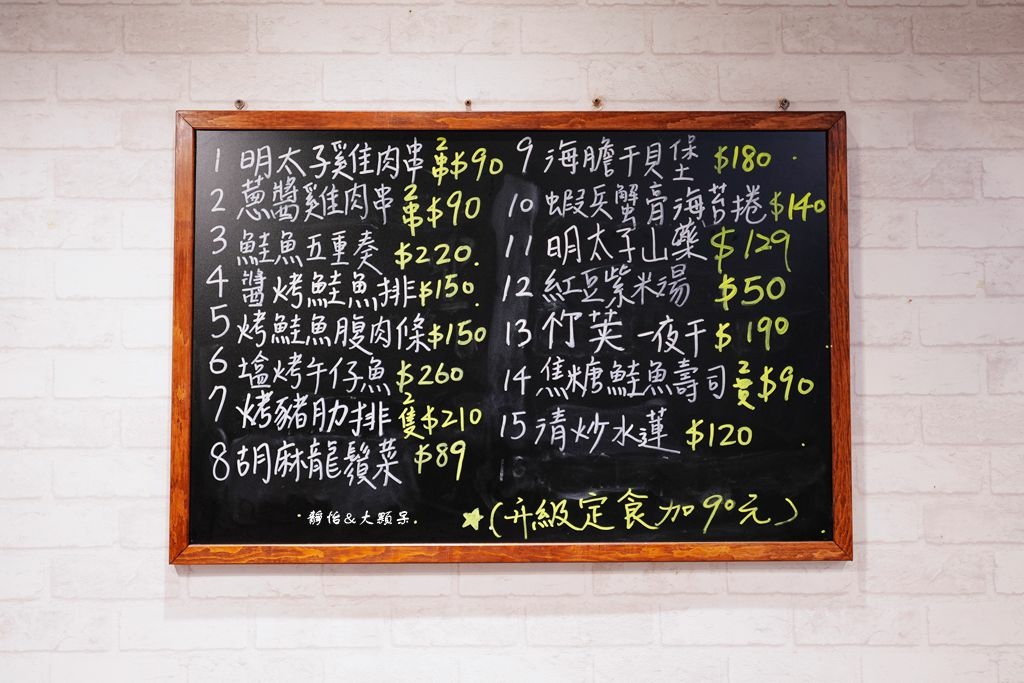 1 明太子雞佳肉串 2串$90
2 蔥醬雞肉串 2串$90
3 鮭魚五重奏 $220.
4 醬烤鮭魚排$150.
5 烤鮭魚腹肉條$150
6 塩烤午仔魚 $260
7 烤豬肋排 2隻$210
8 胡麻龍鬚菜 $89
9 海膽干貝堡 $180
10 蝦兵蟹膏海苔捲$140
11 明太子山藥$129
12 紅豆紫米湯 $50
13 竹筴一夜干 $190
14 焦糖鮭魚壽司 2貫$90
15 清炒水蓮 $120
★(升級定食加90元)
靜怡&大顆呆